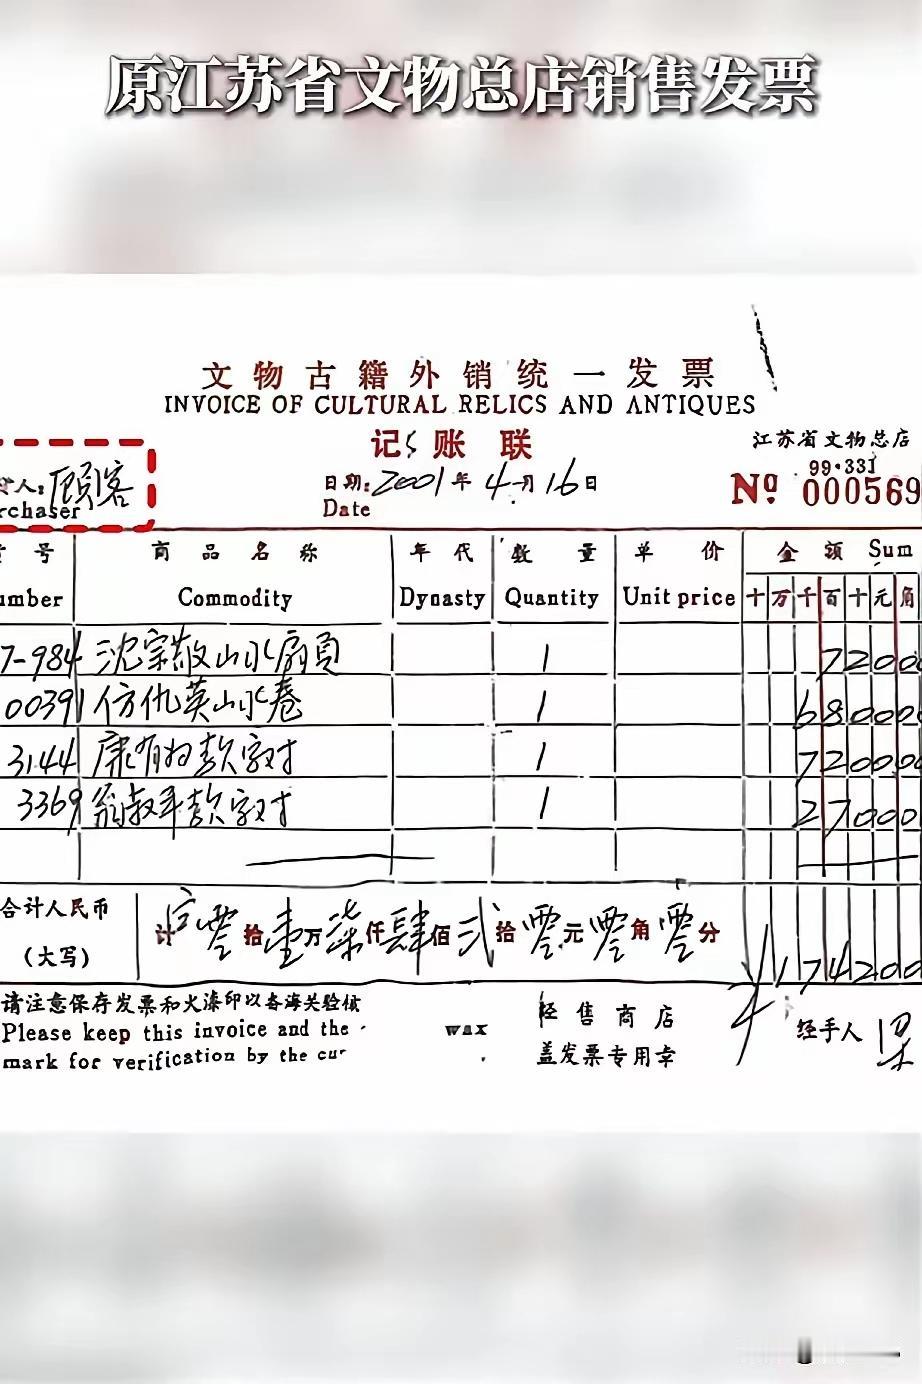 原江苏省文物总店销售发票
文物古籍外销统一发票
INVOICE OF CULTURAL RELICS AND ANTIQUES
记账联
江苏省文物总店
人:顾客
rchaser
日期: 2001年4月16日
Date
99·331
No 000569
号 商品名称 年代 数量 单价 金额 Sum
umber Commodity Dynasty Quantity Unit price 十万千百十元角
7-984 沈宗敬山水扇页 1 72000
00391 仿仇英山水卷 1 680000
3144 康有为款字对 1 720000
3369 翁叔平款字对 1 270000
合计人民币
(大写)
计 零拾壹万柒仟肆佰贰拾零元零角零分
¥174200
请注意保存发票和火漆印以备海关验核
Please keep this invoice and the wax
mark for verification by the cu
经售商店
盖发票专用章
经手人